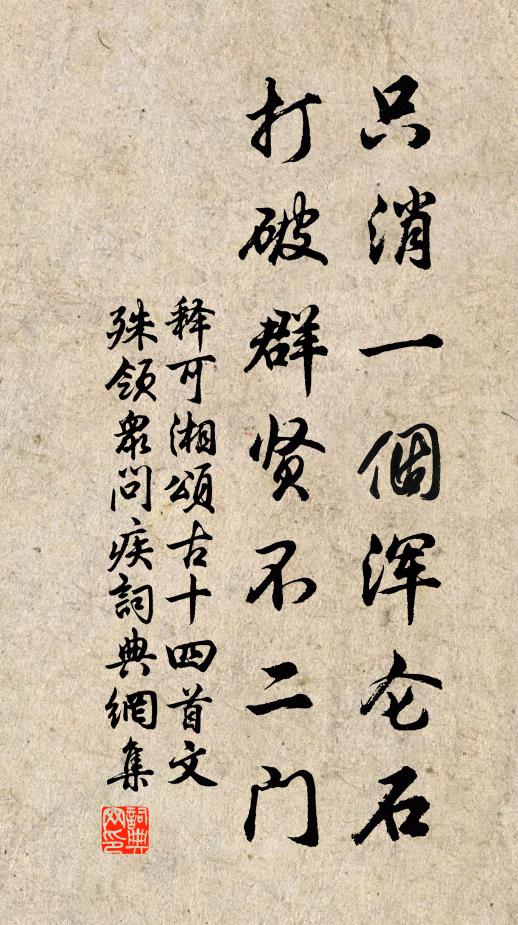 只消一個浑仑石
打破群贤不二门
释可湘頌古十四首文
殊领眾问疾詞典網集
詞典网印